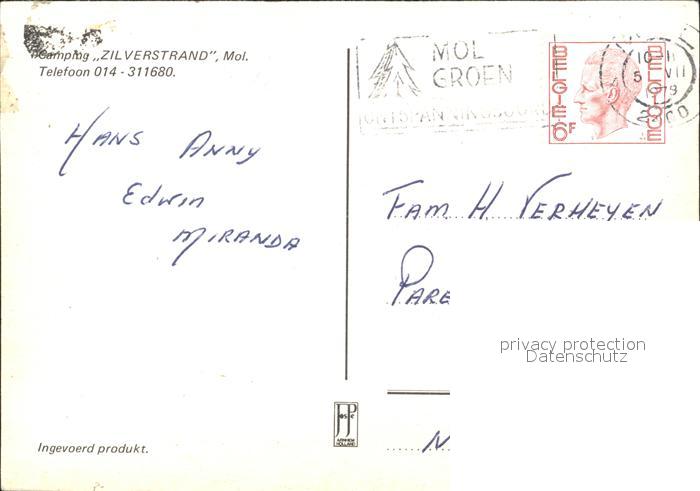 Camping „ZILVERSTRAND”, Mol.
Telefoon 014 - 311680.
MOL
GROEN
ONTSPANNINGSOORD
BELGIE 6F BELGIQUE
10-11
5 VII
1979
2400
HANS ANNY
Edwin
MIRANDA
FAM H VERHEYEN
PARE
privacy protection
Datenschutz
N
JosPe
ARNHEM
HOLLAND
Ingevoerd produkt.